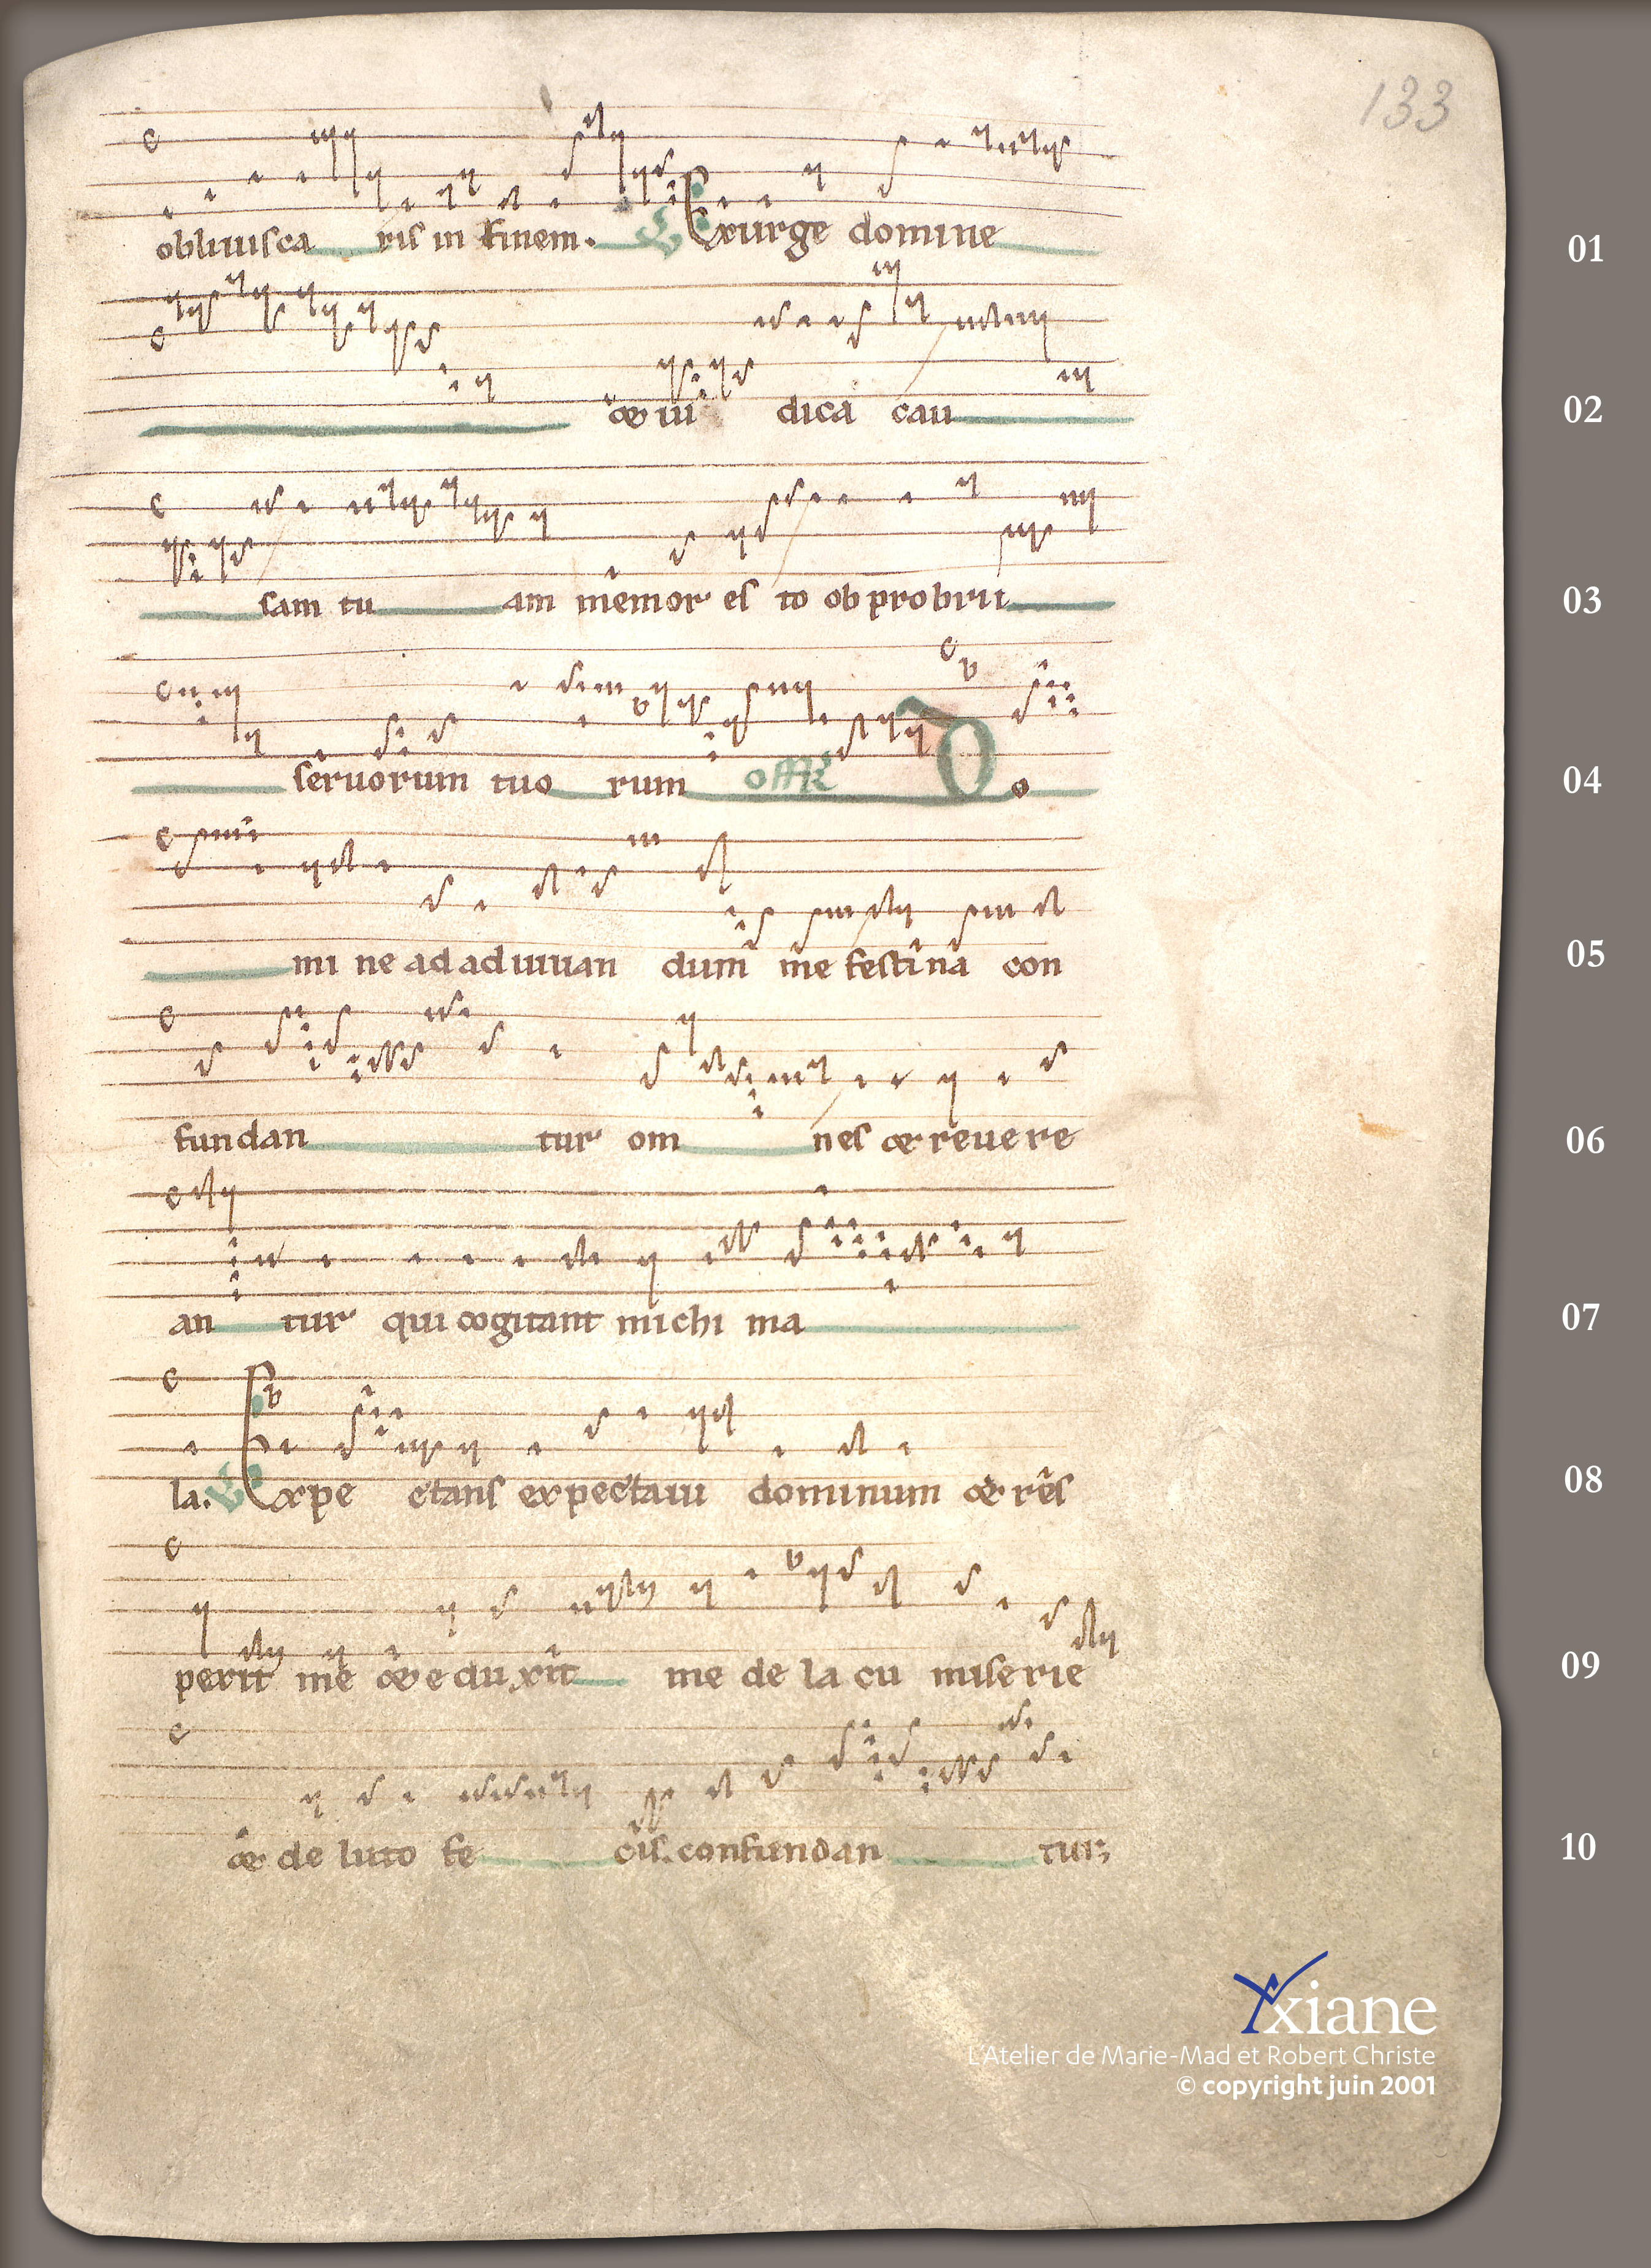 133
obliuisca ris in finem. V Exurge domine 01
& iu dica cau 02
sam tu am memor es to obprobrii 03
seruorum tuo rum off Do 04
mi ne ad adiuuan dum me festina con 05
fundan tur om nes & reuere 06
an tur qui cogitant michi ma 07
la. V Expe ctans expectaui dominum & res 08
perit me & e du xit me de la cu miserie 09
& de luto fe cis. confundan tur; 10
Yxiane
L'Atelier de Marie-Mad et Robert Christe
© copyright juin 2001